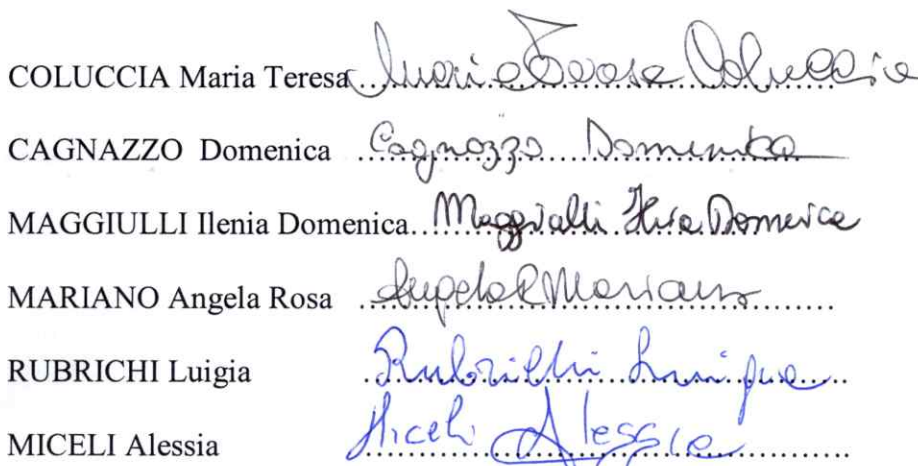 COLUCCIA Maria Teresa Maria Teresa Coluccia
CAGNAZZO Domenica Cagnazzo Domenica
MAGGIULLI Ilenia Domenica Maggiulli Domenica
MARIANO Angela Rosa Angela R Mariano
RUBRICHI Luigia Rubrichi Luigia
MICELI Alessia Miceli Alessia